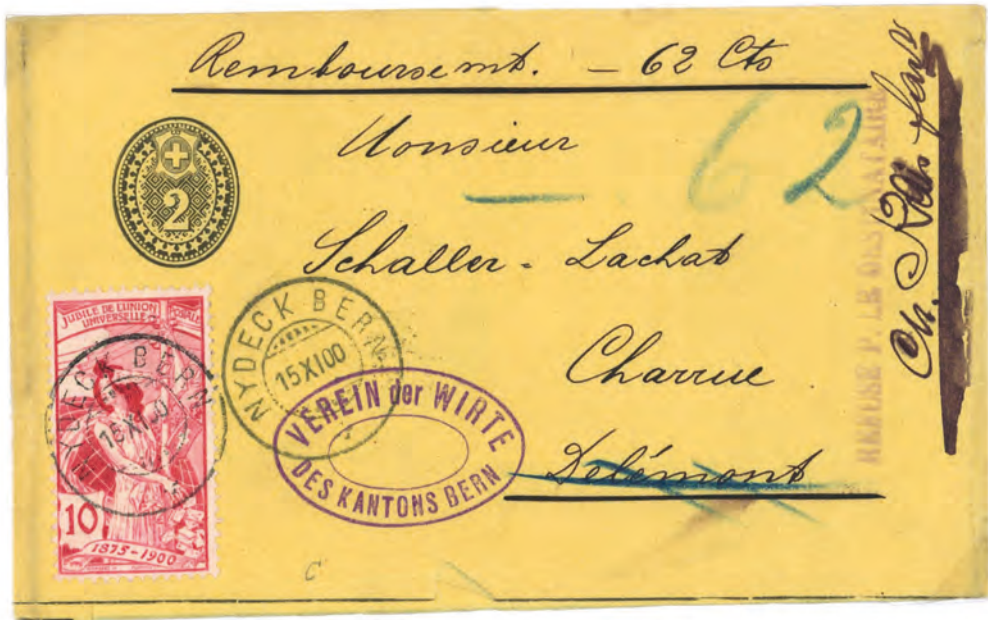 Remboursemt. – 62 Cts
62
2
Monsieur
Schaller-Lachat
Charrue
Delémont
JUBILÉ DE L'UNION POSTALE
UNIVERSELLE
10
1875-1900
NYDECK BERN
15XI00
NYDECK BERN
15XI00
VEREIN der WIRTE
DES KANTONS BERN
P. LE DESTINATAIRE
Ch.